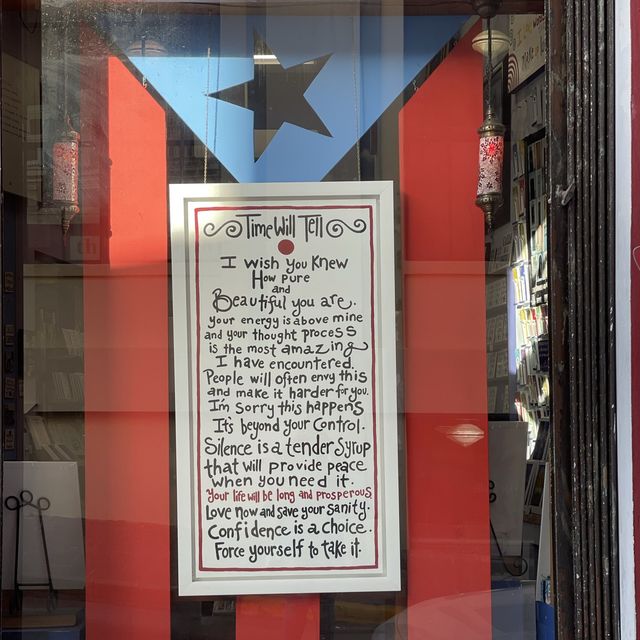 Time Will Tell
I wish you knew
How pure
and
Beautiful you are.
your energy is above mine
and your thought process
is the most amazing
I have encountered.
People will often envy this
and make it harder for you.
I'm sorry this happens
It's beyond your control.
Silence is a tender syrup
that will provide peace
when you need it.
Your life will be long and prosperous
Love now and save your sanity.
Confidence is a choice.
Force yourself to take it.